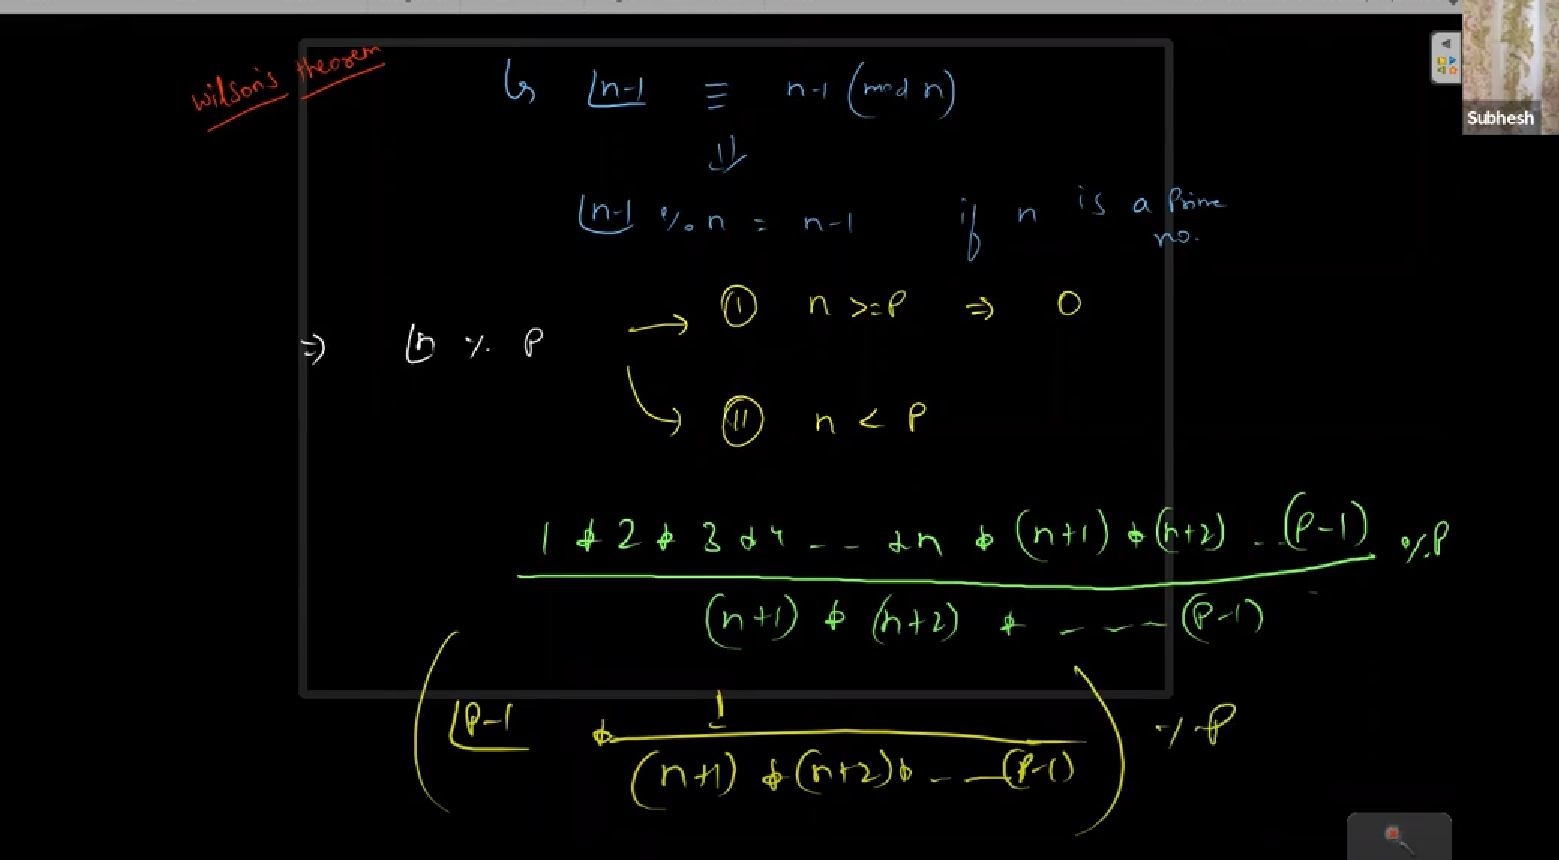 Wilson's theorem
↳ ⌊n-1 ≡ n-1 (mod n)
⇓
⌊n-1 % n = n-1 if n is a Prime no.
① n >= P ⇒ 0
⇒ ⌊n % P
② n < P
1 * 2 * 3 * 4 - - * n * (n+1) * (n+2) - - (P-1) % P
(n+1) * (n+2) * - - - - (P-1)
( ⌊P-1 * 1 ) % P
(n+1) * (n+2) * - - (P-1)
Subhesh